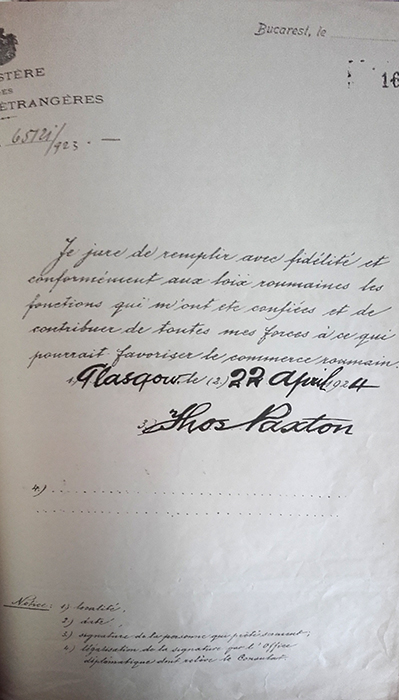 Bucarest, le
STÈRE
ES
ÉTRANGÈRES
16
/923. —
Je jure de remplir avec fidélité et
conformément aux loix roumaines les
fonctions qui m'ont ete confiées et de
contribuer de toutes mes forces à ce qui
pourrait favoriser le commerce roumain.
1) Glasgow. le (2) 22 April 1924
3) Thos Paxton
4)
Notice: 1) localité.
2) date
3) signature de la personne qui prête serment;
4) légalisation de la signature par l'Office
diplomatique dont relève le Consulat.